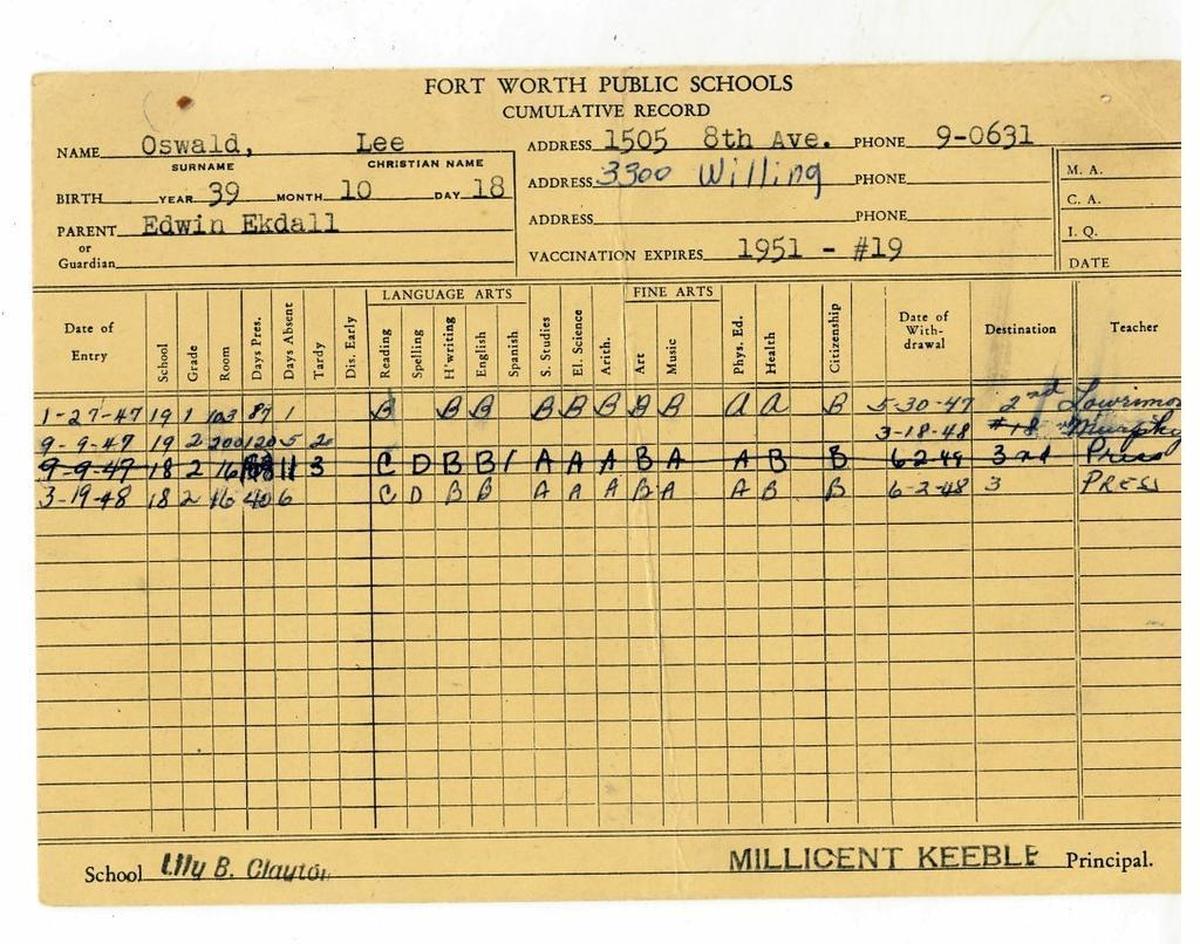 FORT WORTH PUBLIC SCHOOLS
CUMULATIVE RECORD
NAME Oswald, Lee ADDRESS 1505 8th Ave. PHONE 9-0631
SURNAME CHRISTIAN NAME
ADDRESS 3300 Willing PHONE M. A.
BIRTH YEAR 39 MONTH 10 DAY 18 C. A.
PARENT Edwin Ekdall ADDRESS PHONE I. Q.
or
Guardian VACCINATION EXPIRES 1951 - #19 DATE
LANGUAGE ARTS FINE ARTS
Date of Entry School Grade Room Days Pres. Days Absent Tardy Dis. Early Reading Spelling H'writing English Spanish S. Studies El. Science Arith. Art Music Phys. Ed. Health Citizenship Date of With-drawal Destination Teacher
1-27-47 19 1 103 87 1 B B B B B B B B A A B 5-30-47 2nd Lowrimor
9-9-47 19 2 200 120 5 2 3-18-48 #18 Murphy
9-9-47 18 2 16 11 3 C D B B / A A A B A A B B 6-2-49 3nd Press
3-19-48 18 2 16 40 6 C D B B A A A B A A B B 6-2-48 3 PRESS
School Lily B. Clayton MILLICENT KEEBLE Principal.